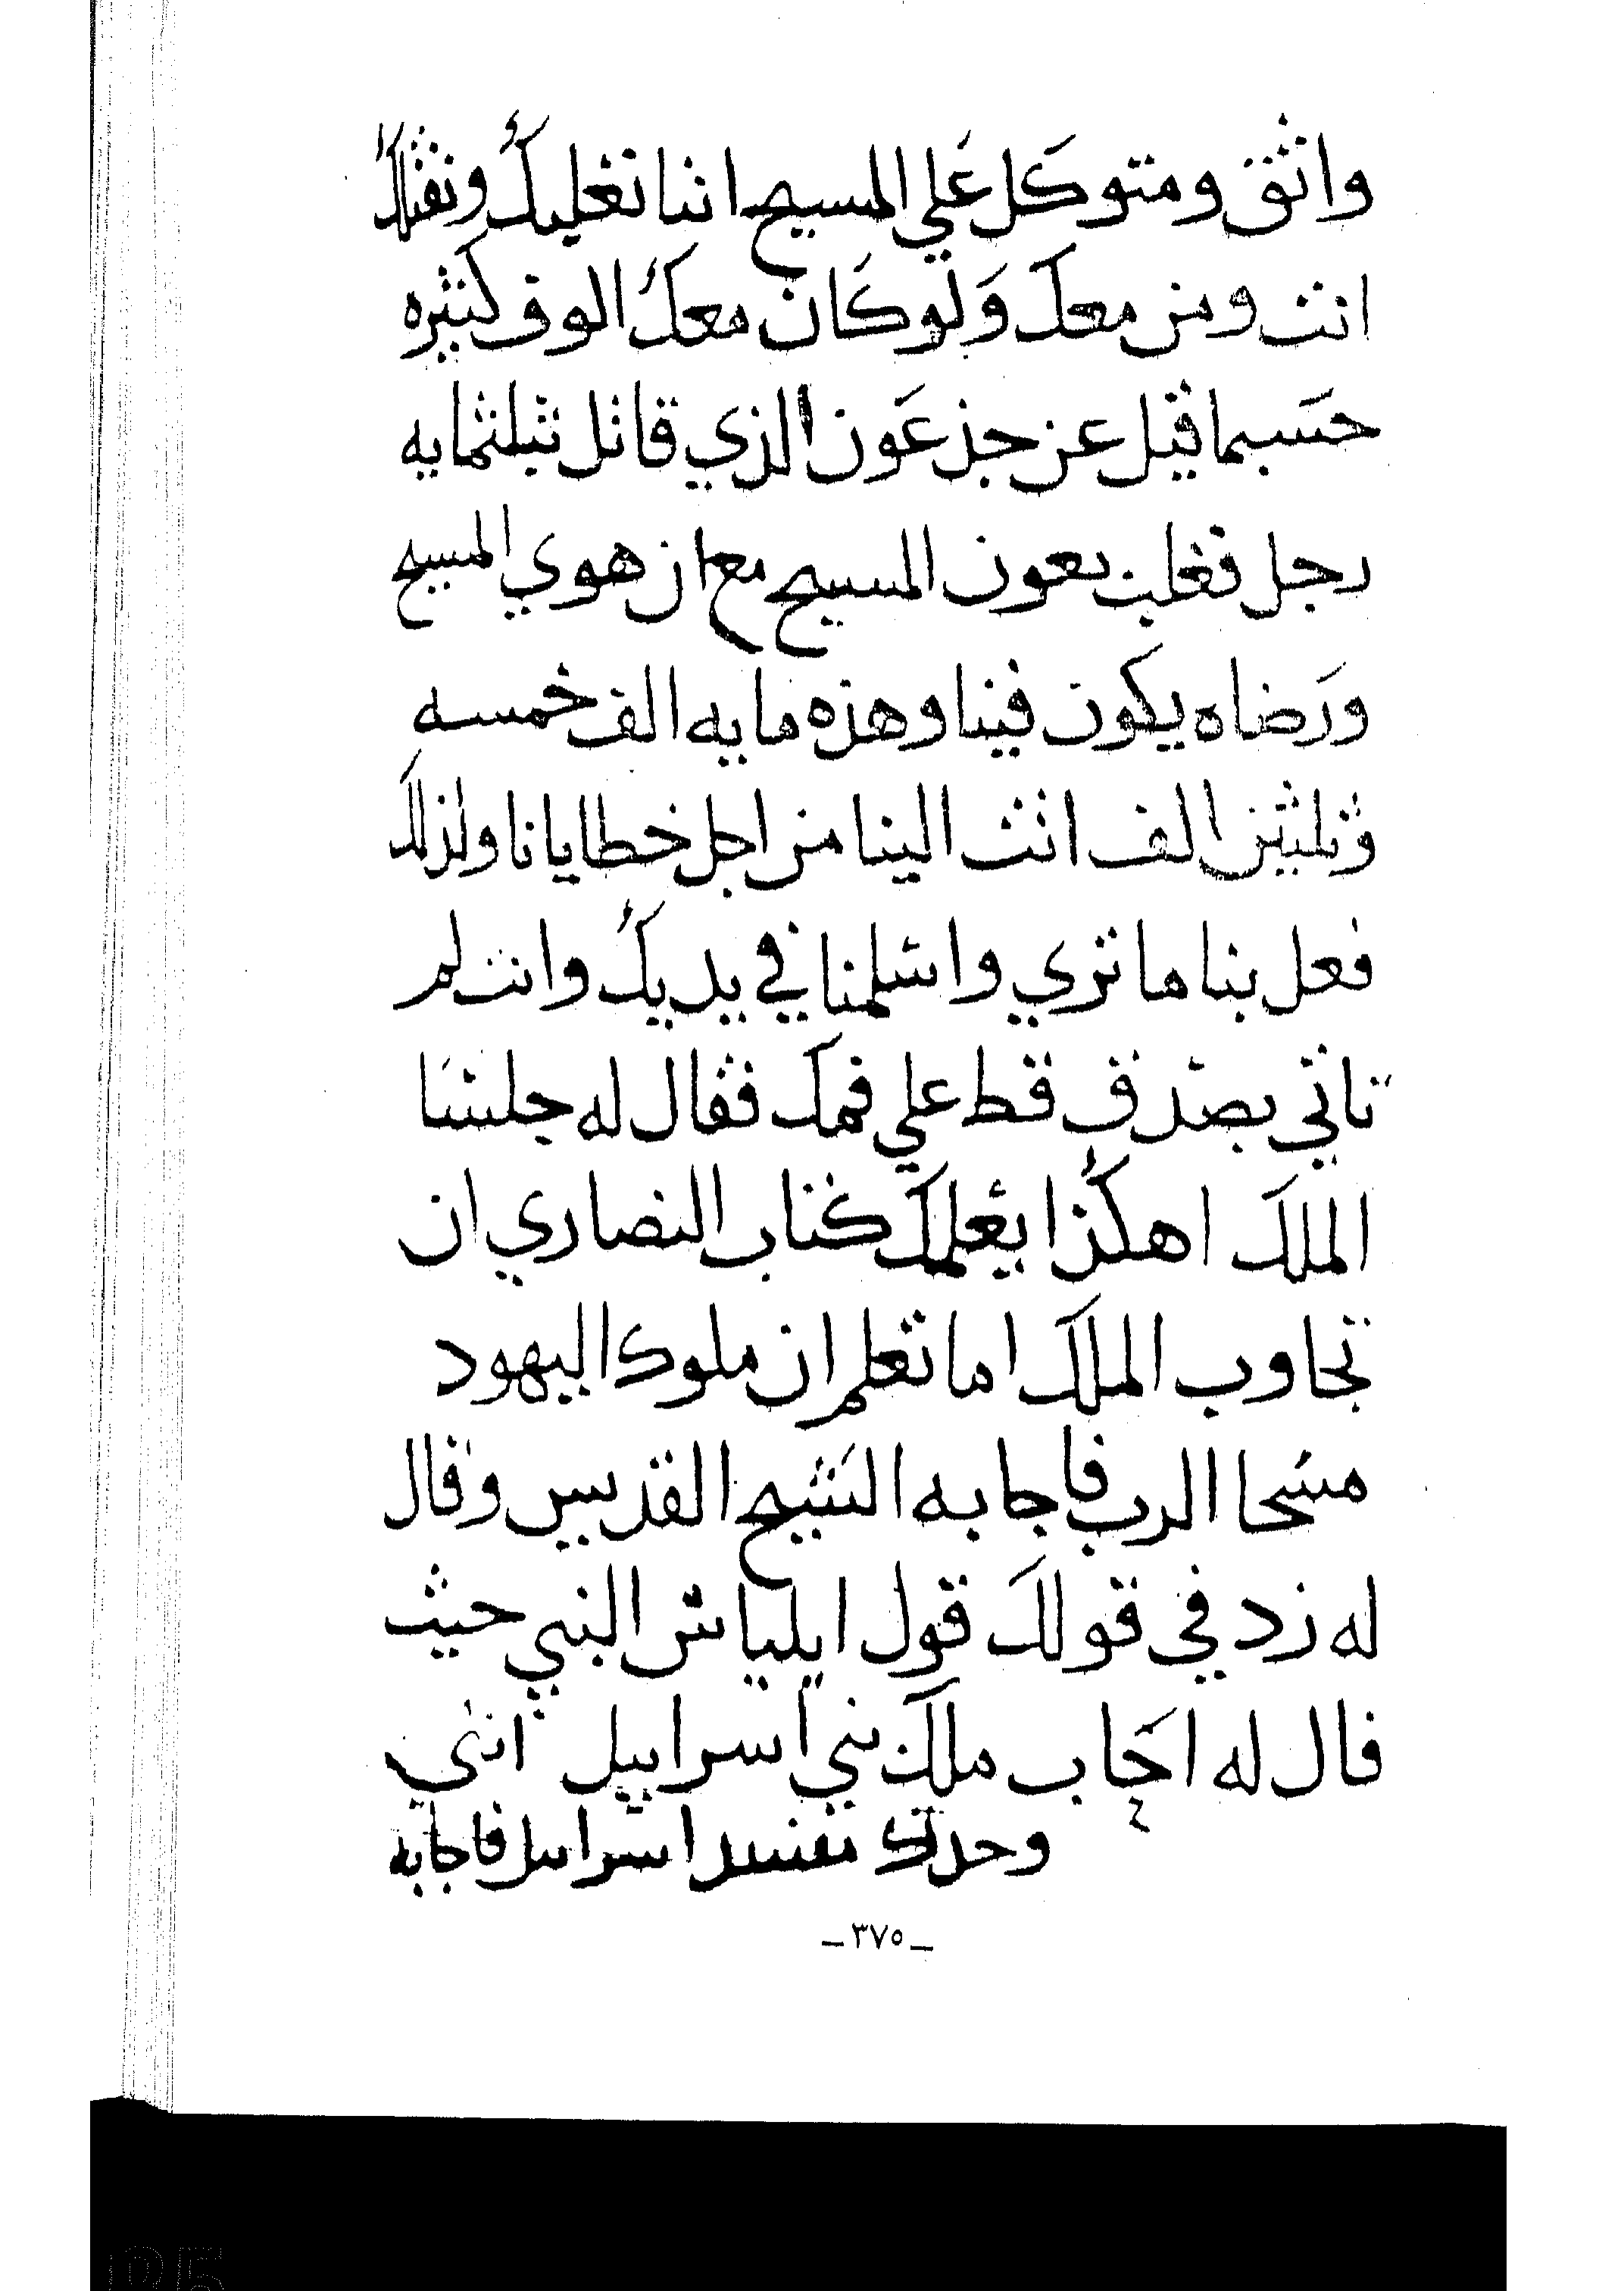 واثق ومتوكل علي المسيح اننا نغلبك ونقتلك
انت ومن معك ولو كان معك الوف كثيره
حسبما قيل عن جدعون الذي قاتل بثلثمايه
رجل فغلب بعون المسيح مع ان هوي المسيح
ورضاه يكون فينا وهذه مايه الف خمسه
وثلثين الف اتت الينا من اجل خطايانا ولذلك
فعل بنا ما تري واسلمنا في يديك وانت لم
تاتي بصدق قط علي فمك فقال له جلسا
الملك اهكذا يعلمك كتاب النصاري ان
تجاوب الملك اما تعلم ان ملوك اليهود
مسحا الرب فاجابه الشيخ القديس وقال
له زد في قولك قول ايلياس النبي حيث
قال له احاب ملك بني اسراييل انتي
وحدك تفسد اسراييل فاجابه
ـ ٣٧٥ ـ